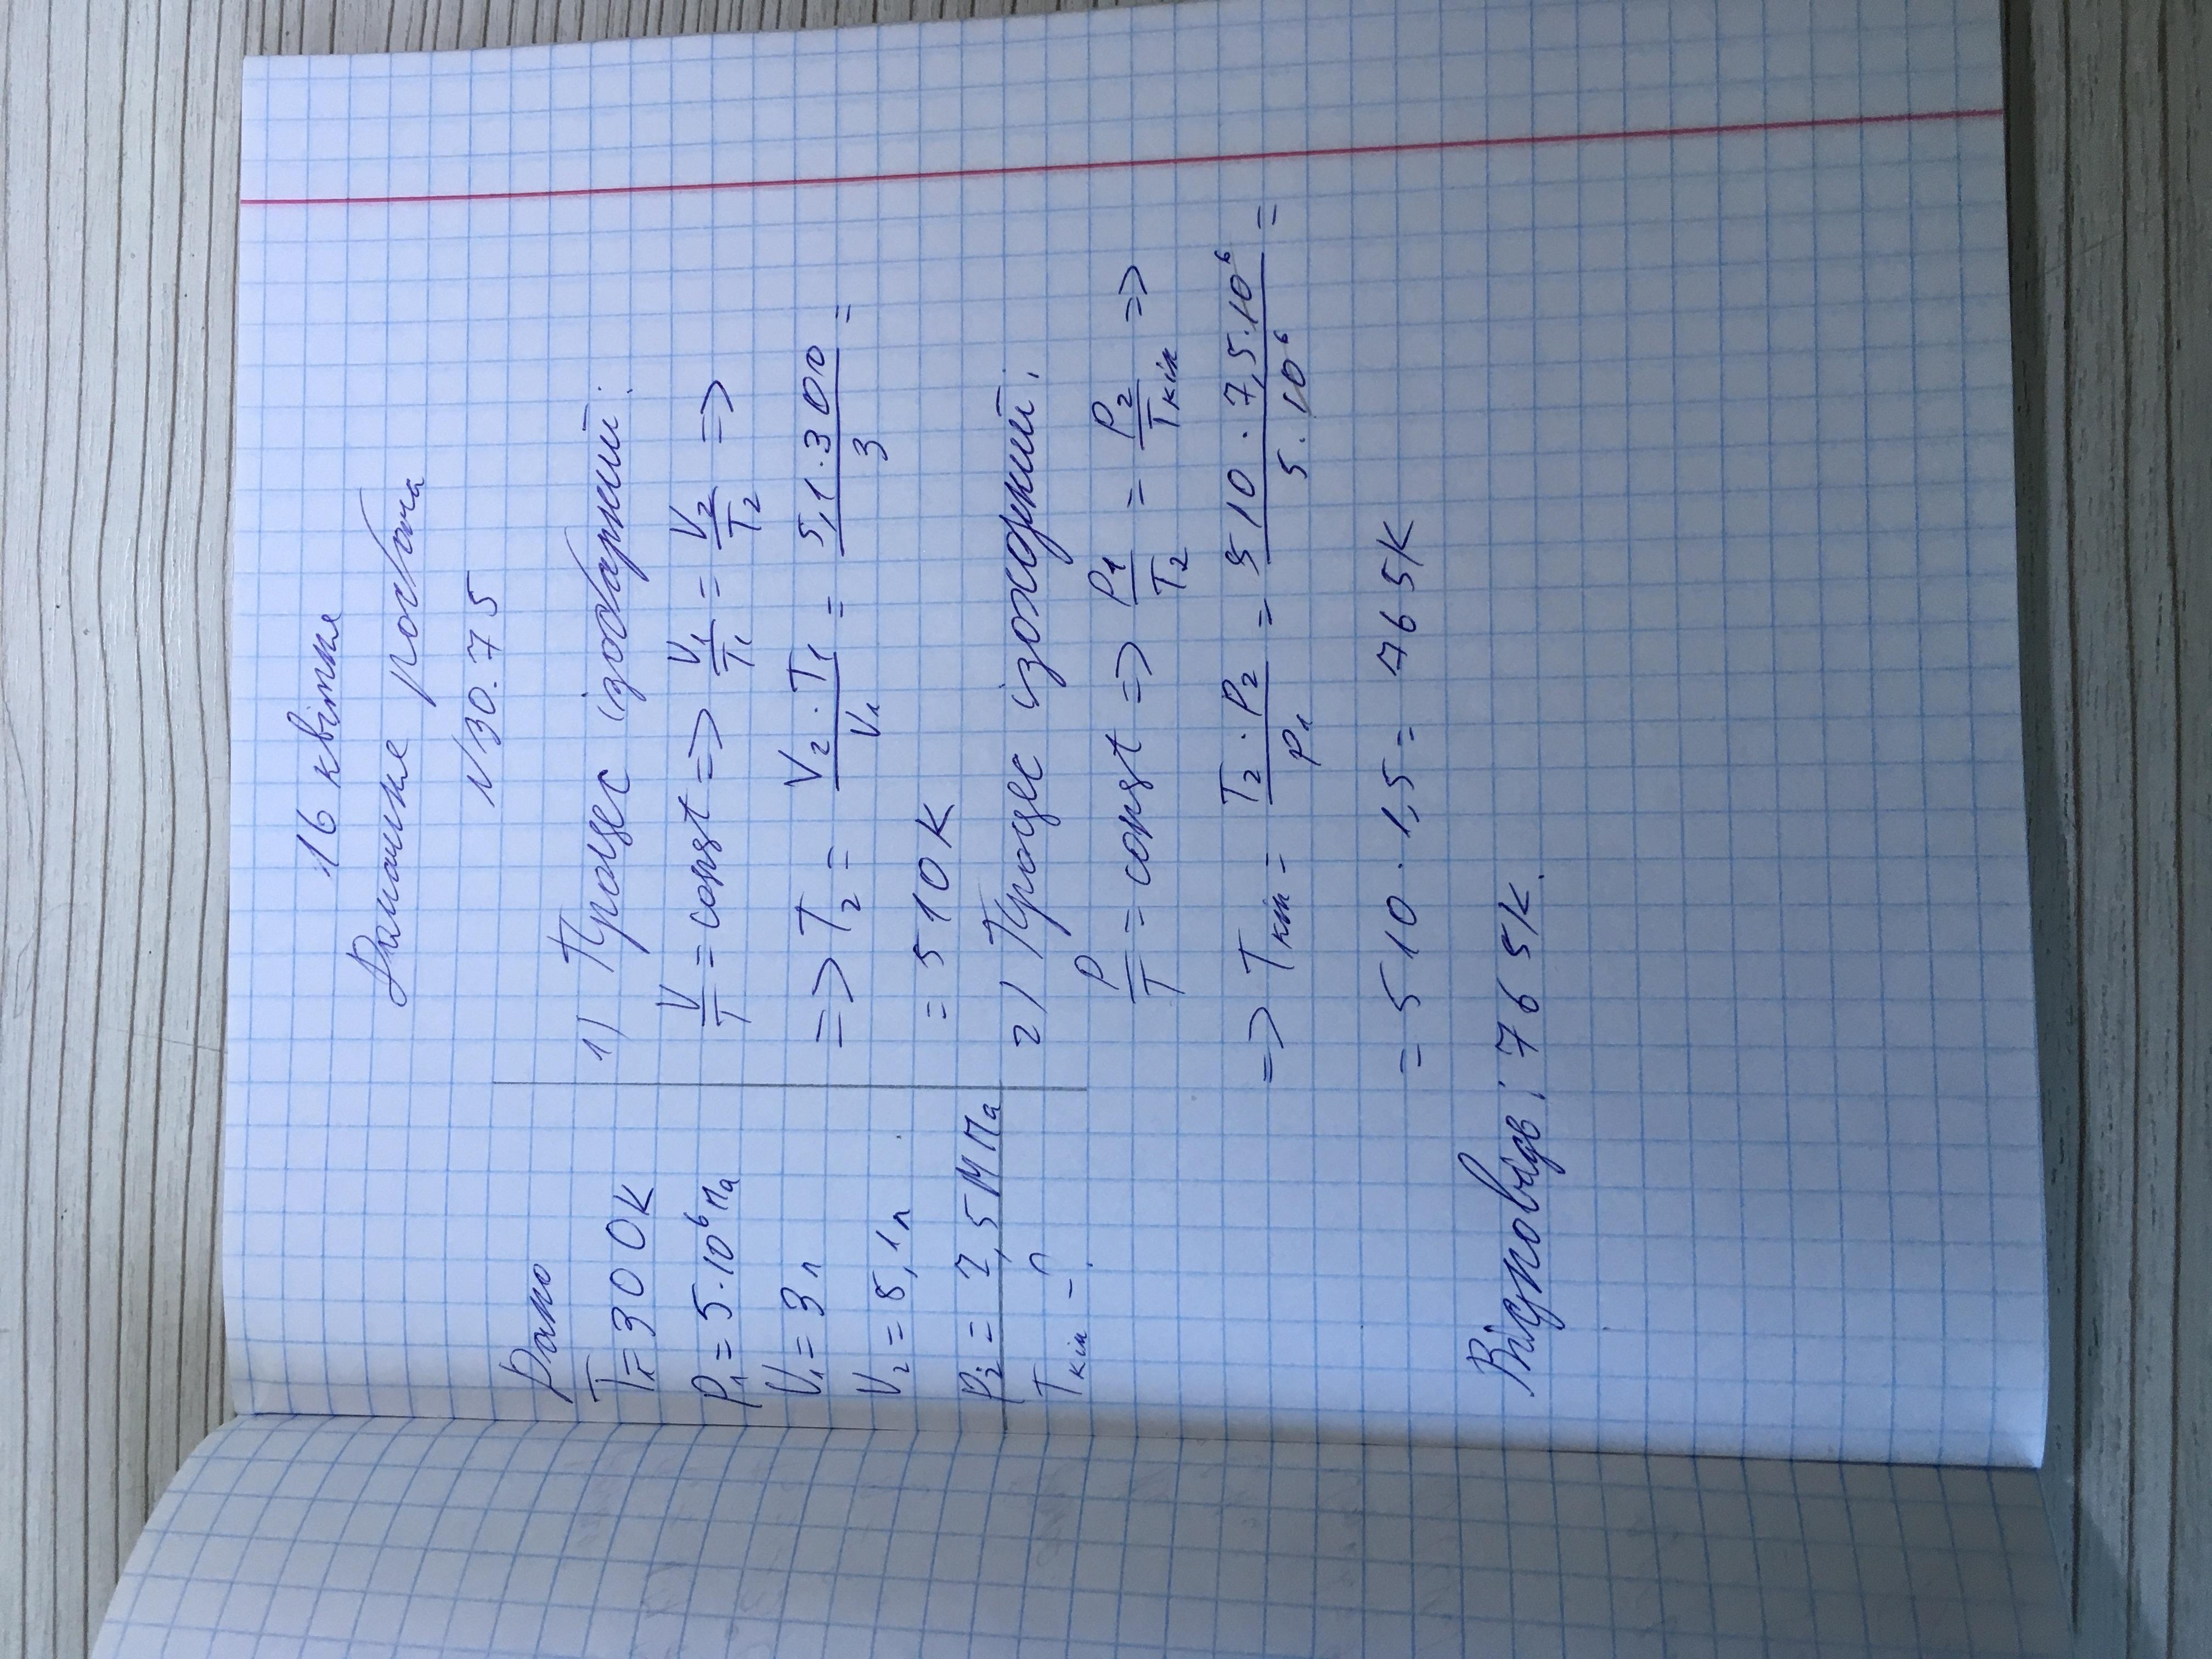 16 квітня
Домашня робота
№30.75
Дано
T₁=300K
P₁=5·10⁶Па
V₁=3л
V₂=5,1л
P₂=7,5МПа
Tкін-?
1) Процес ізобарний:
V/T=const=>V₁/T₁=V₂/T₂=>
=>T₂=V₂·T₁/V₁=5,1·300/3=
=510K
2) Процес ізохорний:
P/T=const=>P₁/T₂=P₂/Tкін=>
=>Tкін=T₂·P₂/P₁=510·7,5·10⁶/5·10⁶=
=510·1,5=765K
Відповідь: 765K.